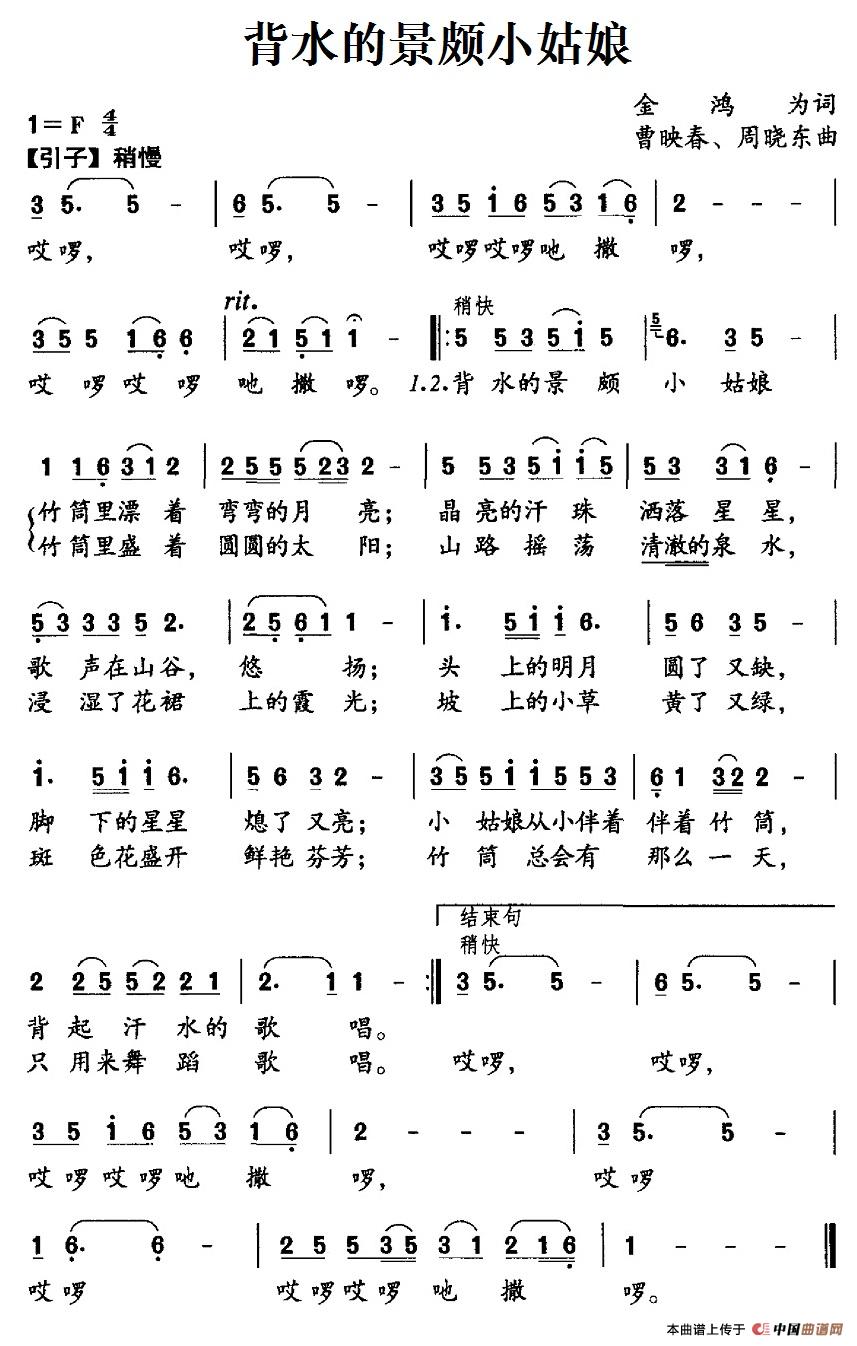 背水的景颇小姑娘
金鸿为词
1=F 4/4
曹映春、周晓东曲
【引子】稍慢
3 5. 5 - | 6 5. 5 - | 3 5 i 6 5 3 1 6 | 2 - - - |
哎啰， 哎啰， 哎啰哎啰吔撒啰，
rit. 稍快
3 5 5 1 6 6 | 2 1 5 1 1 - ‖: 5 5 3 5 i 5 | 5 6. 3 5 - |
哎啰哎啰吔撒啰。 1.2.背水的景颇小姑娘
1 1 6 3 1 2 | 2 5 5 5 2 3 2 - | 5 5 3 5 i i 5 | 5 3 3 1 6 - |
竹筒里漂着弯弯的月亮；晶亮的汗珠洒落星星，
竹筒里盛着圆圆的太阳；山路摇荡清澈的泉水，
5 3 3 3 5 2. | 2 5 6 1 1 - | i. 5 i i 6. | 5 6 3 5 - |
歌声在山谷，悠扬；头上的明月圆了又缺，
浸湿了花裙上的霞光；坡上的小草黄了又绿，
i. 5 i i 6. | 5 6 3 2 - | 3 5 5 i i 5 5 3 | 6 1 3 2 2 - |
脚下的星星熄了又亮；小姑娘从小伴着伴着竹筒，
斑色花盛开鲜艳芬芳；竹筒总会有那么一天，
结束句
稍快
2 2 5 5 2 2 1 | 2. 1 1 - :‖ 3 5. 5 - | 6 5. 5 - |
背起汗水的歌唱。
只用来舞蹈歌唱。哎啰， 哎啰，
3 5 i 6 5 3 1 6 | 2 - - - | 3 5. 5 - |
哎啰哎啰吔撒啰， 哎啰
1 6. 6 - | 2 5 5 3 5 3 1 2 1 6 | 1 - - - ‖
哎啰 哎啰哎啰吔撒啰。
本曲谱上传于 中国曲谱网